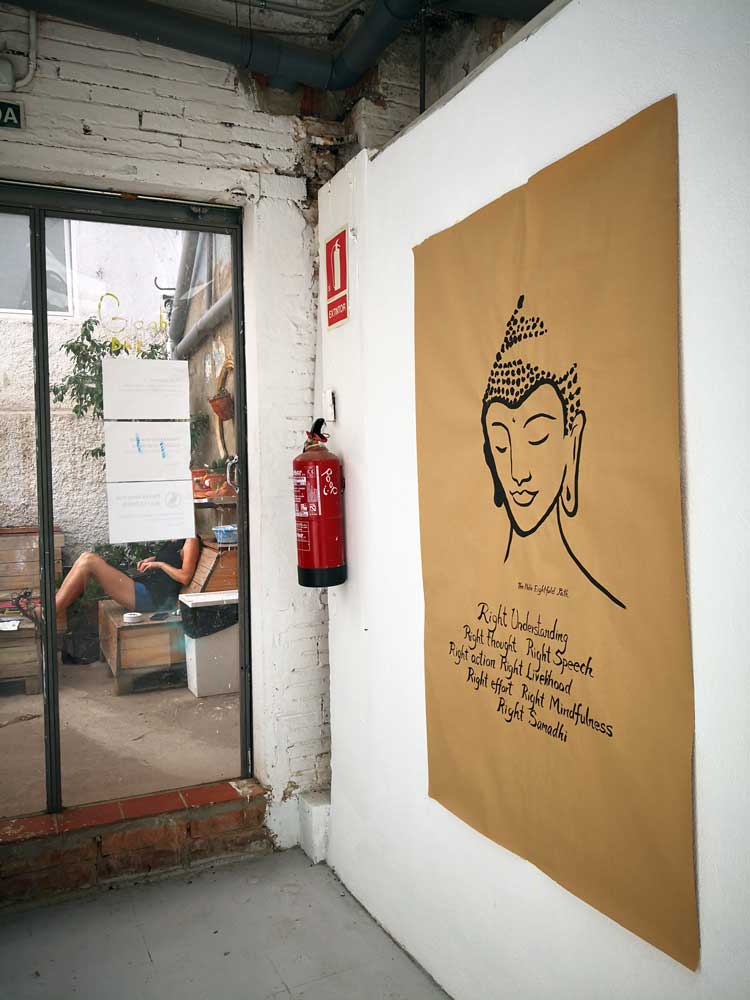 DA
EXTINTOR
The Noble Eightfold Path
Right Understanding
Right thought Right Speech
Right action Right Livelihood
Right effort Right Mindfulness
Right Samadhi